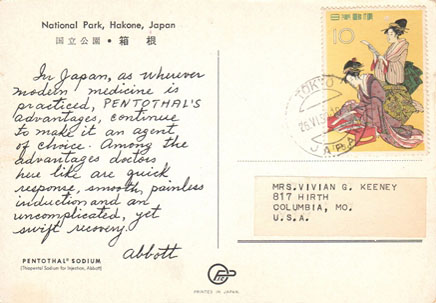 National Park, Hakone, Japan
国立公園・箱根
In Japan, as wherever
modern medicine is
practiced, PENTOTHAL'S
advantages, continue
to make it an agent
of choice. Among the
advantages doctors
here like are quick
response, smooth, painless
induction and an
uncomplicated, yet
swift recovery.
Abbott
PENTOTHAL® SODIUM
(Thiopental Sodium for Injection, Abbott)
日本郵便
10
TOKYO
JAPAN
MRS. VIVIAN G. KEENEY
817 HIRTH
COLUMBIA, MO.
U.S.A.
PRINTED IN JAPAN